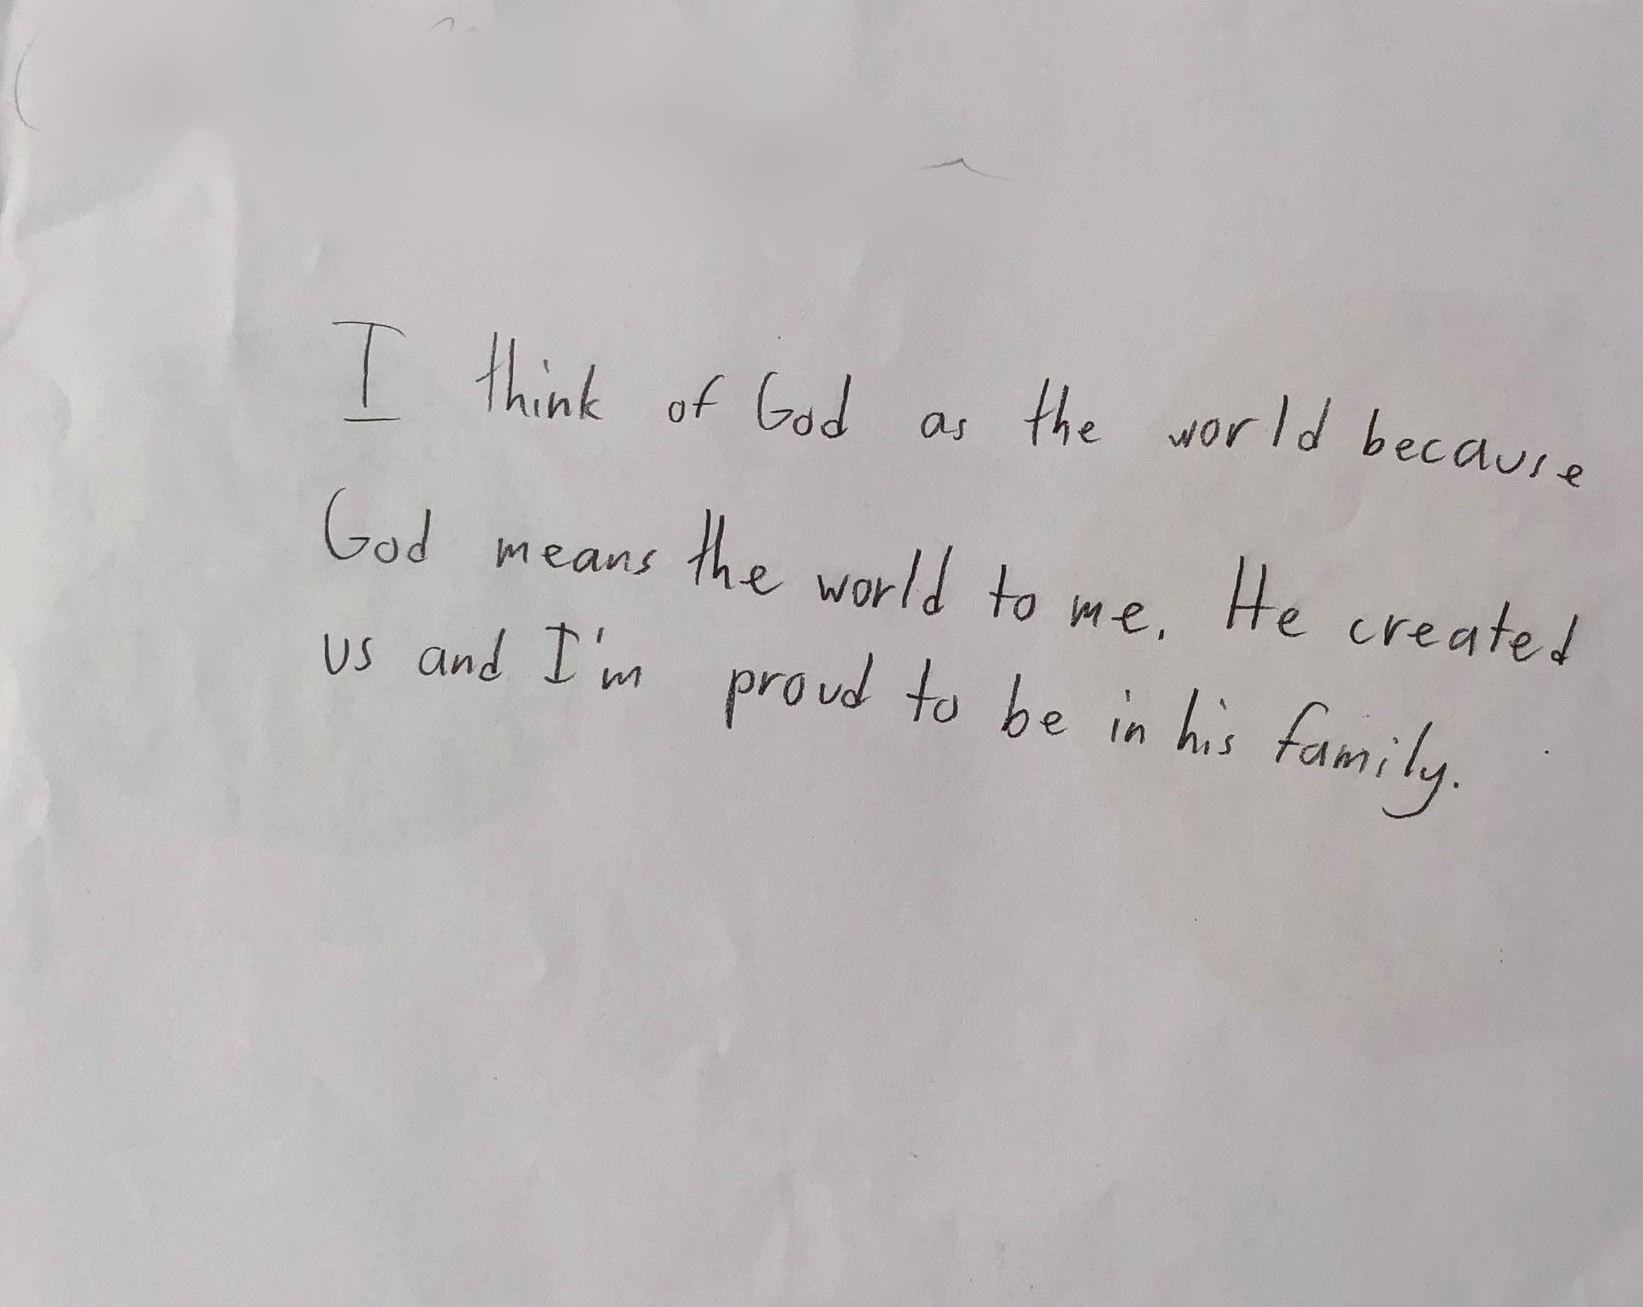 I think of God as the world because
God means the world to me. He created
us and I'm proud to be in his family.